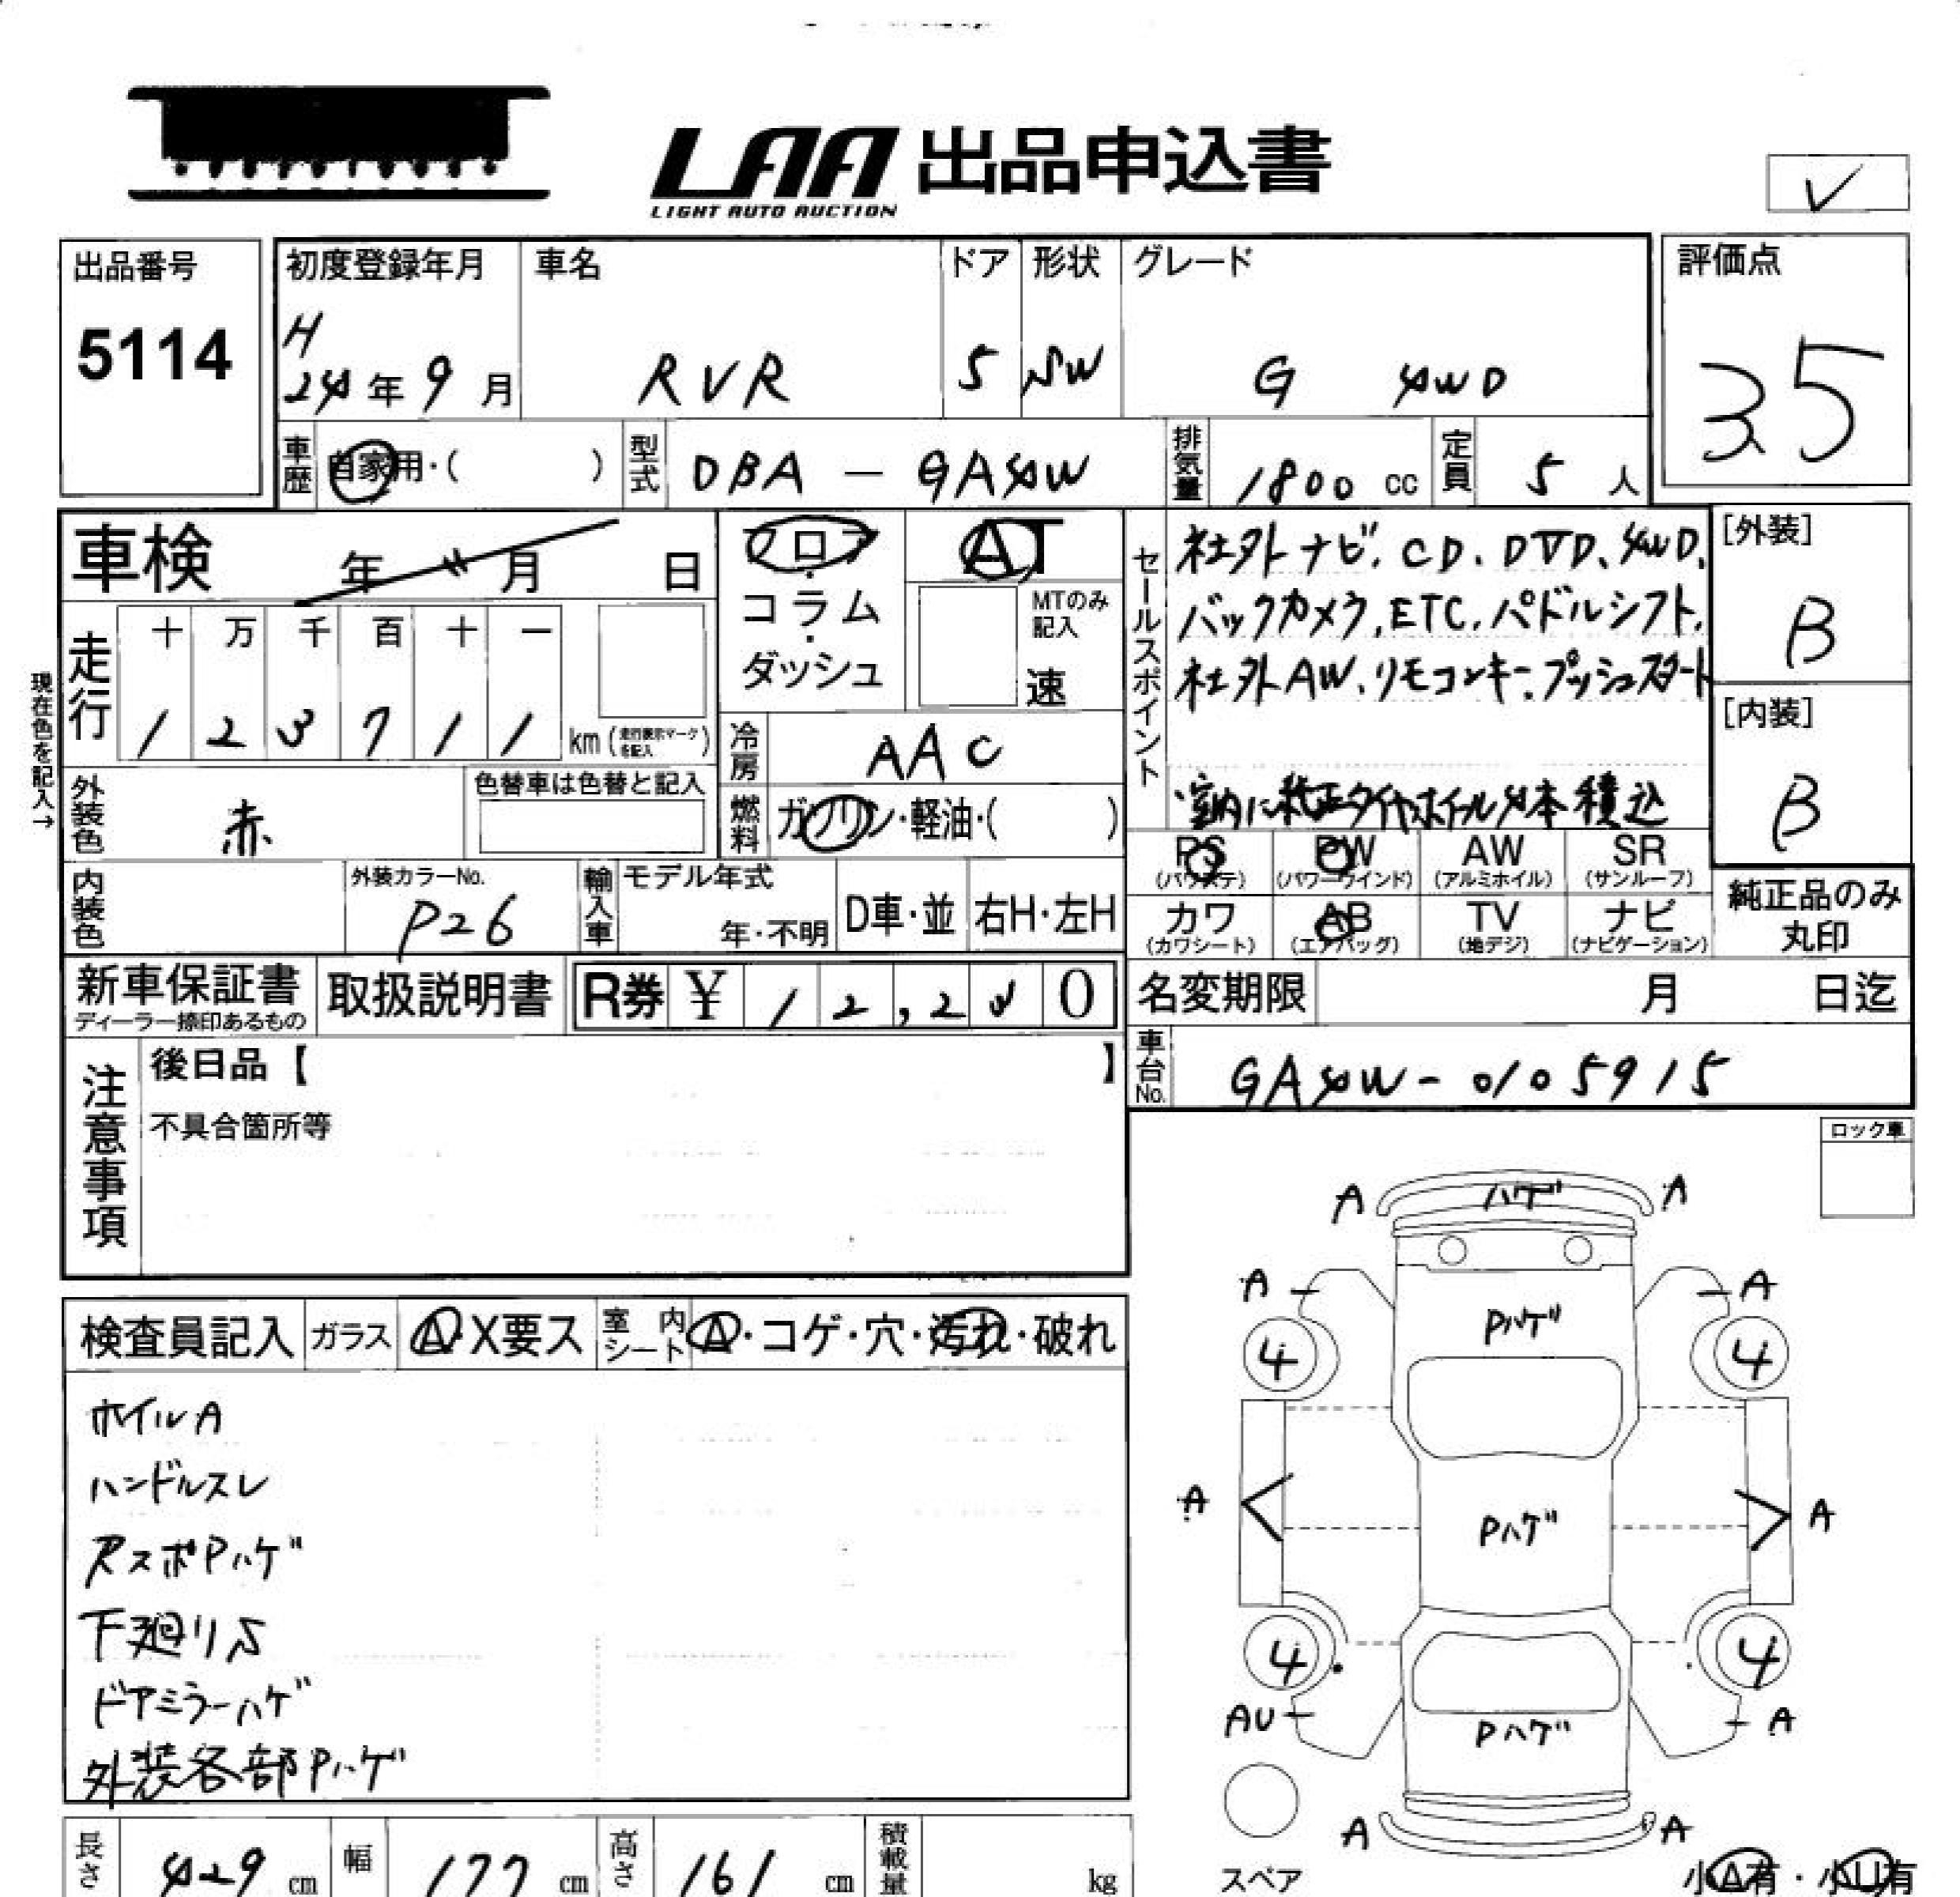 LAA 出品申込書
LIGHT AUTO AUCTION
出品番号
5114
初度登録年月
H
24年9月
車名
RVR
ドア
5
形状
SW
グレード
G 4WD
評価点
3.5
車歴
自家用・( )
型式
DBA-GA4W
排気量
1800 cc
定員
5 人
車検 年 〃 月 日
フロア
・
コラム
・
ダッシュ
AT
MTのみ
記入
速
セールスポイント
社外ナビ、CD、DVD、4WD、
バックカメラ、ETC、パドルシフト、
社外AW、リモコンキー、プッシュスタート
室内に純正タイヤホイル4本積込
[外装]
B
[内装]
B
現在色を記入→
走行
十 万 千 百 十 一
1 2 3 7 1 1 km (走行表示マークを記入)
冷房
AAC
外装色
赤
色替車は色替と記入
燃料
ガソリン・軽油・( )
PS
(パワステ)
PW
(パワーウインド)
AW
(アルミホイル)
SR
(サンルーフ)
内装色
外装カラーNo.
P26
輸入車
モデル年式
年・不明
D車・並
右H・左H
カワ
(カワシート)
AB
(エアバッグ)
TV
(地デジ)
ナビ
(ナビゲーション)
純正品のみ
丸印
新車保証書
ディーラー捺印あるもの
取扱説明書
R券 ¥ 12,240
名変期限 月 日迄
車台No.
GA4W-0105915
注意事項
後日品【 】
不具合箇所等
ロック車
検査員記入
ガラス
A・X要ス
室内
シート
A・コゲ・穴・汚れ・破れ
ホイルA
ハンドルスレ
RスポPハゲ
下廻りS
ドアミラーハゲ
外装各部Pハゲ
A ハゲ A
A A
Pハゲ
4 4
A Pハゲ A
4 4
AU A
Pハゲ
A A
スペア
小A有・小U有
長さ
429 cm
幅
177 cm
高さ
161 cm
積載量
kg